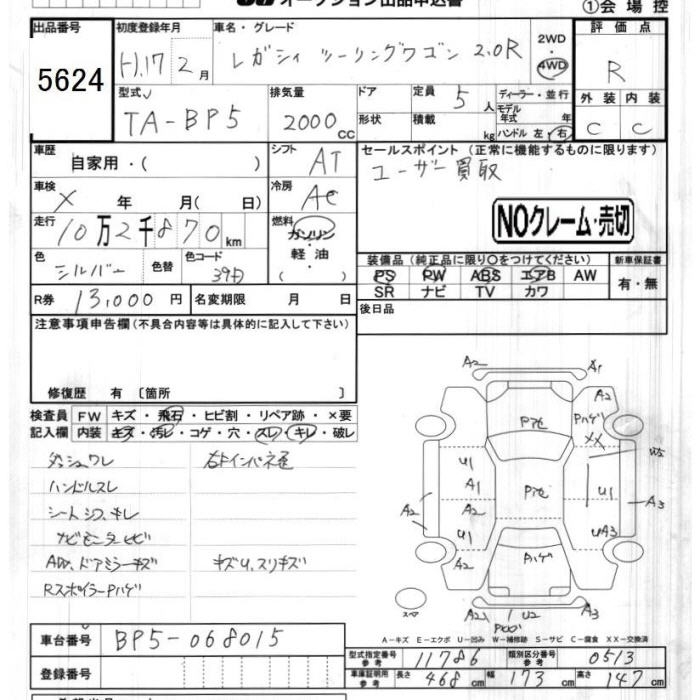 オークション出品申込書
①会場控
出品番号 5624
初度登録年月 H17 年 2月
車名・グレード レガシィ ツーリングワゴン 2.0R
2WD
4WD
評価点 R
外装 C 内装 C
型式 TA-BP5
排気量 2000 cc
ドア
形状
定員 5人
積載 kg
ディーラー・並行
モデル年式 年
ハンドル 左・右
車歴 自家用・( )
シフト AT
セールスポイント(正常に機能するものに限ります)
ユーザー買取
車検 X 年 月( 日)
冷房 AC
NOクレーム・売切
走行 10万2千870km
燃料 ガソリン・軽油・( )
色 シルバー 色替
色コード 39D
装備品(純正品に限り○をつけてください)
PS PW ABS エアB AW
SR ナビ TV カワ
新車保証書
有・無
R券 13,000円
名変期限 月 日
後日品
注意事項申告欄(不具合内容等は具体的に記入して下さい)
修復歴 有〔箇所 〕
検査員記入欄
FW キズ・飛石・ヒビ割・リペア跡・×要
内装 キズ・汚レ・コゲ・穴・スレ・キレ・破レ
ダッシュワレ
ハンドルスレ
シートシワ、キレ
ナビモニターヒビ
AW、ドアミラーキズ
キズU、スリキズ
RスポイラーPハゲ
A2 A1
A2
Pハゲ
XX
W5
U1
A1
A2
U1
A2
A2
U1
A3
UA3
Pハゲ
スペア
A2 U2 A3
A-キズ E-エクボ U-凹み W-補修跡 S-サビ C-腐食 XX-交換済
車台番号 BP5-068015
登録番号
型式指定番号 参考 11786
類別区分番号 参考 0513
車庫証明用 参考 長さ 468cm 幅 173cm 高さ 147cm